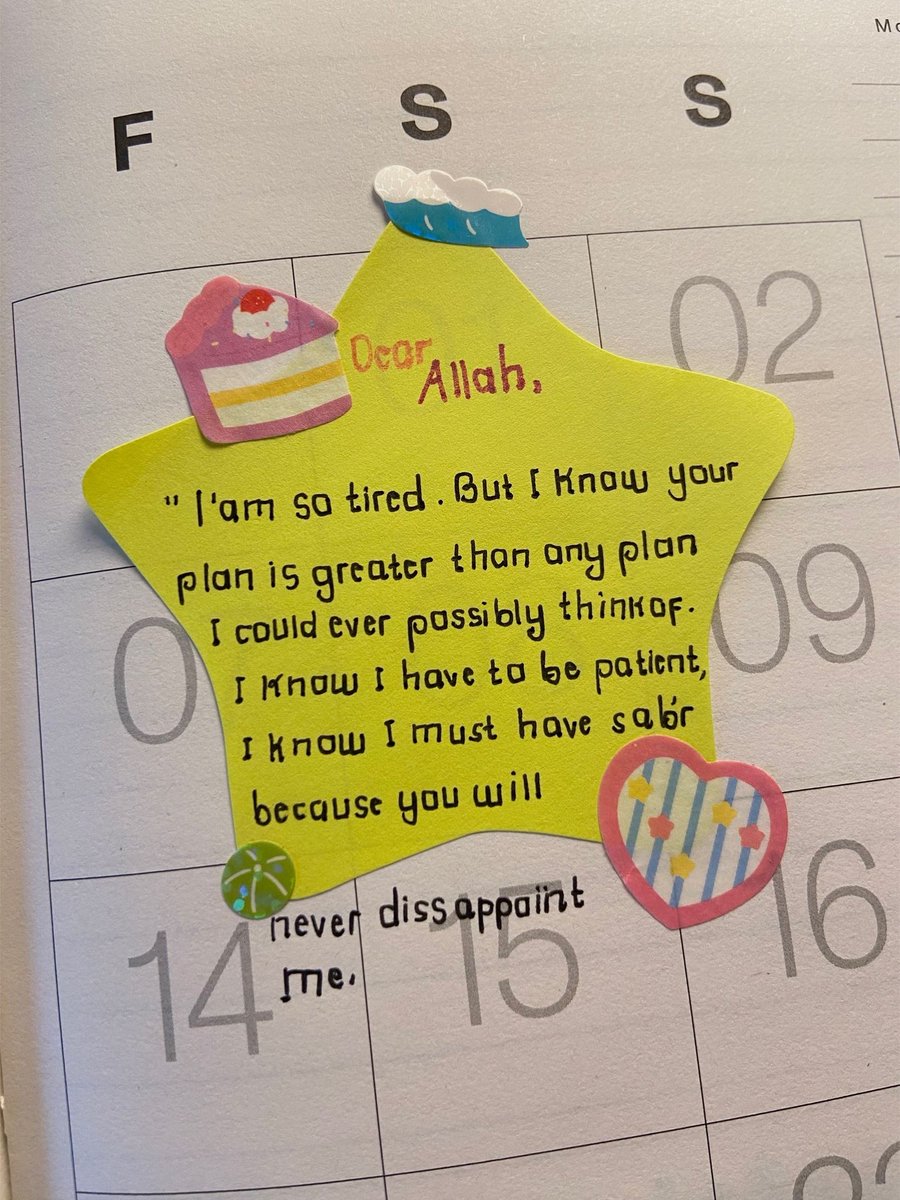 Mo
F S S
02
Dear
Allah,
" I'am so tired. But I know your
plan is greater than any plan
I could ever possibly think of.
I know I have to be patient,
I know I must have sab'r
because you will
0
09
never dissappoint
me.
14 15 16